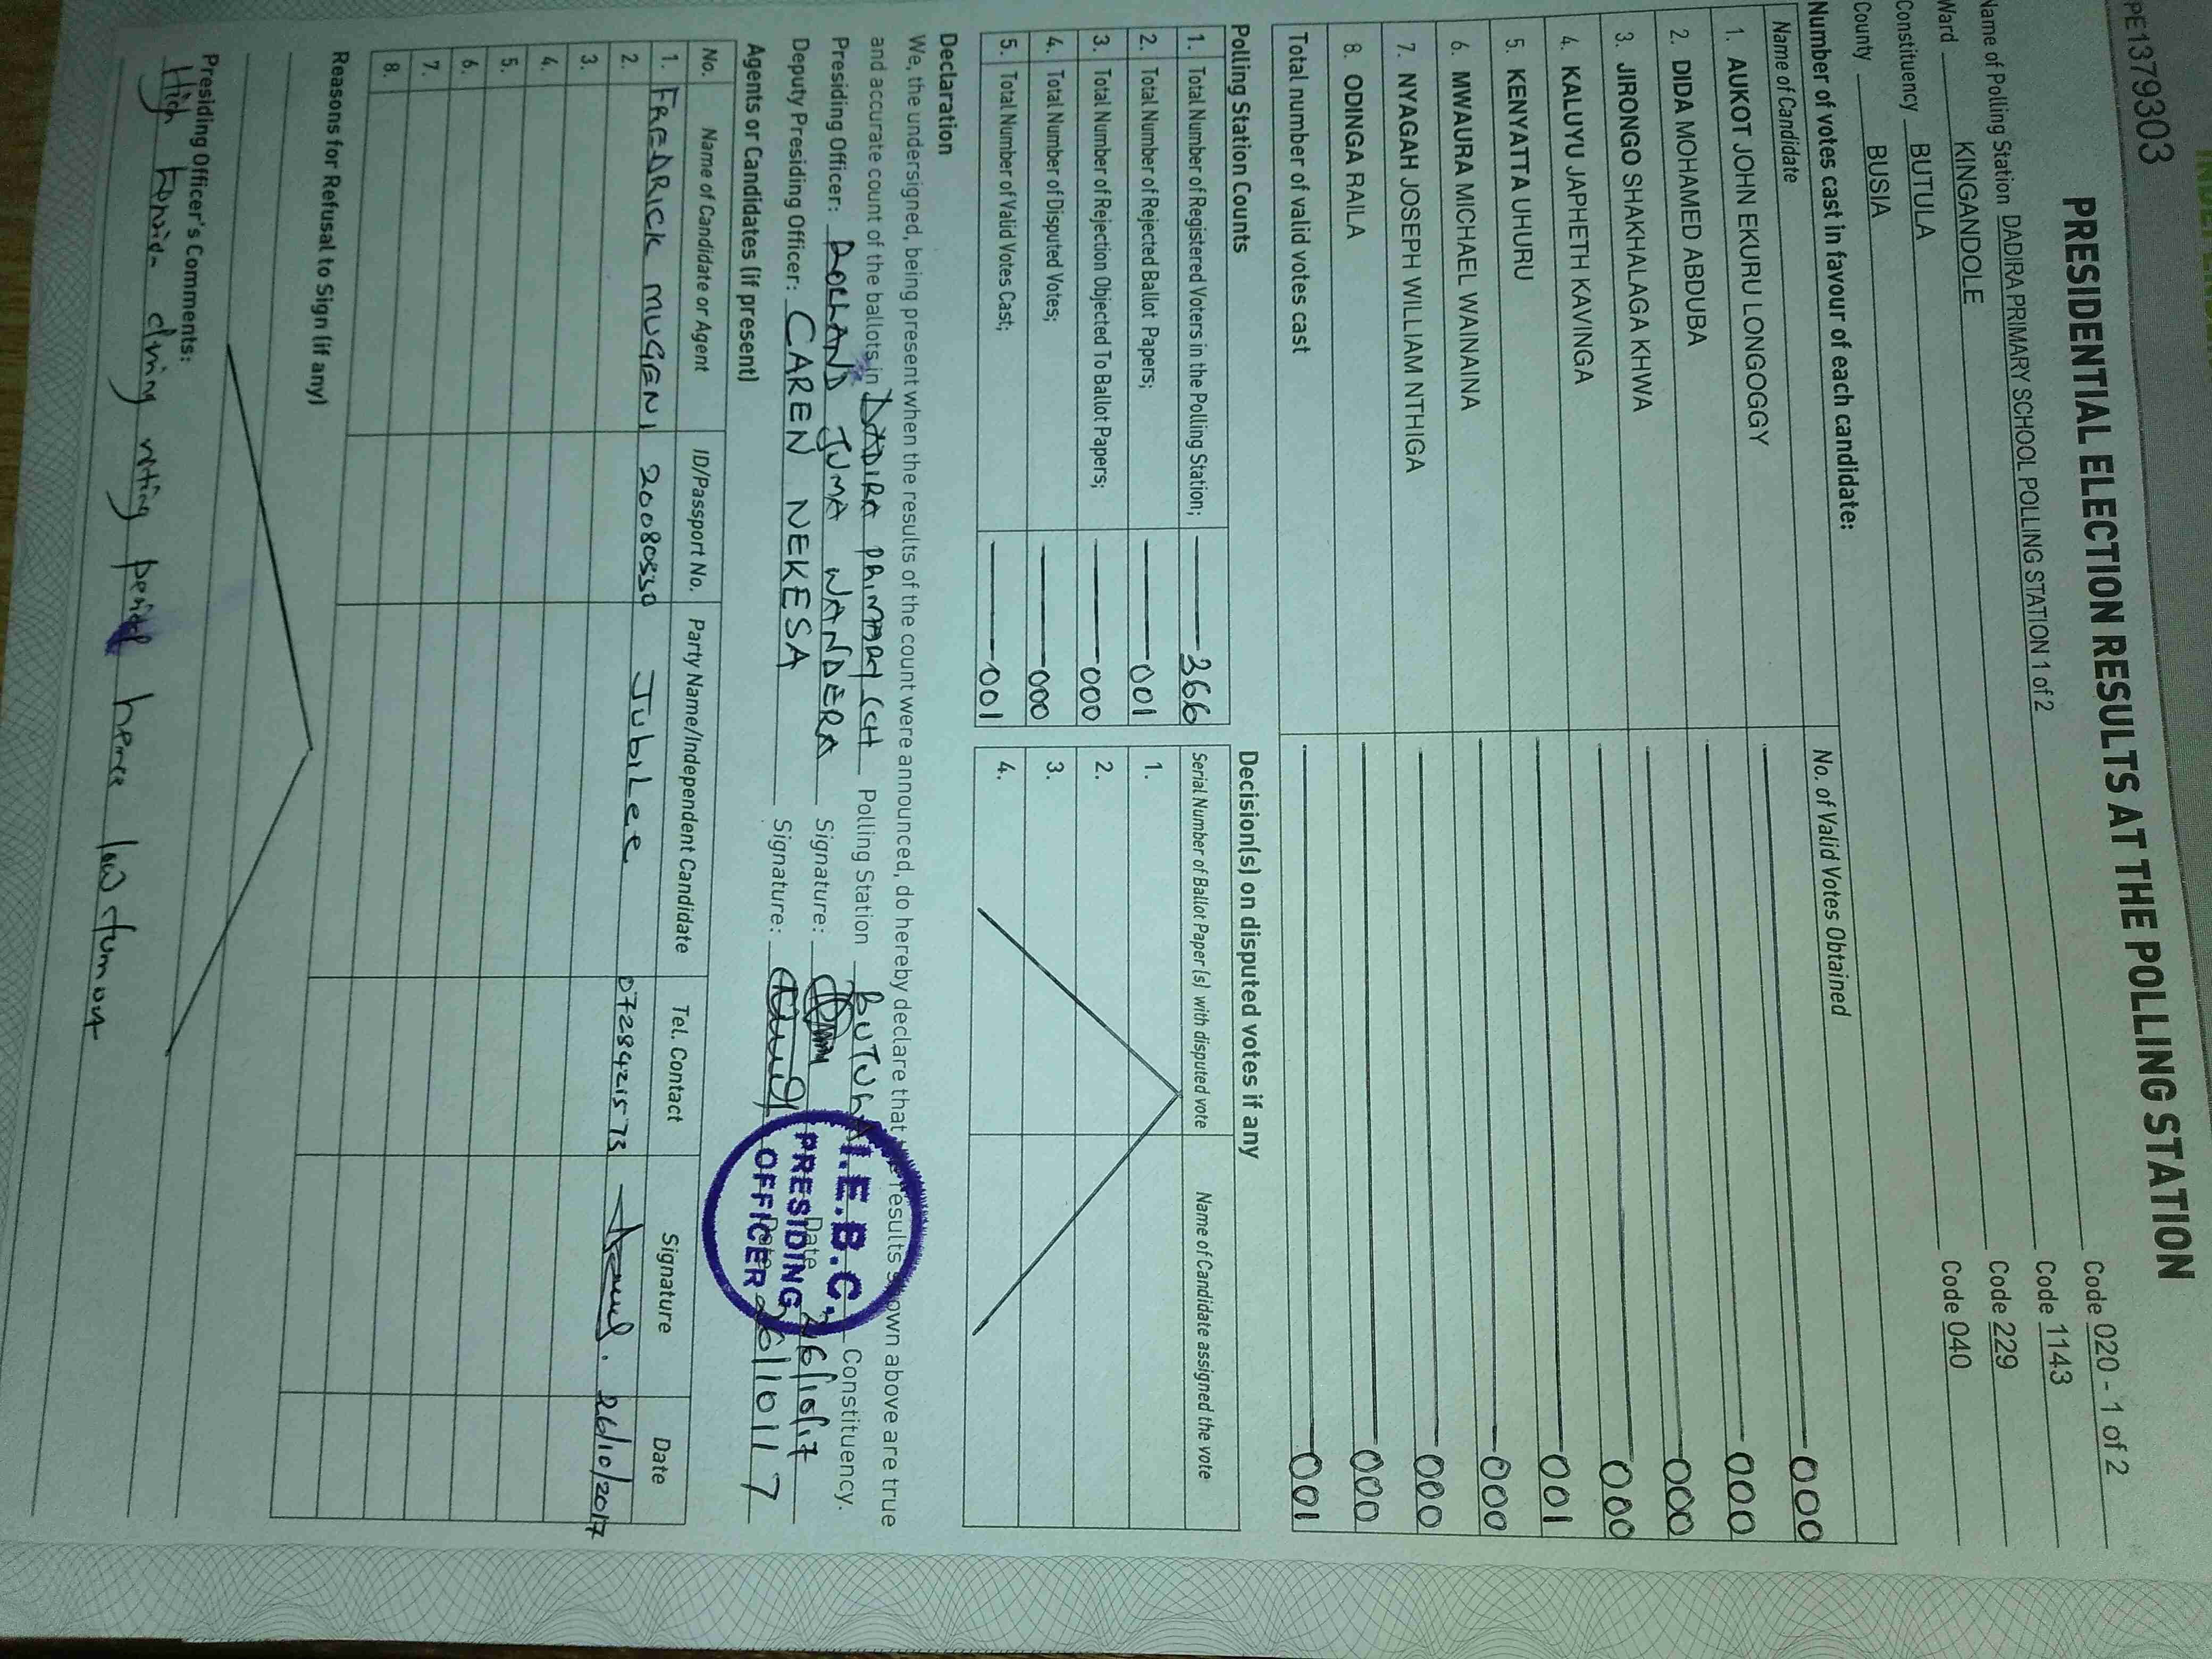 PE1379303
PRESIDENTIAL ELECTION RESULTS AT THE POLLING STATION
Name of Polling Station DADIRA PRIMARY SCHOOL POLLING STATION 1 of 2 Code 020 - 1 of 2
Ward KINGANDOLE Code 1143
Constituency BUTULA Code 229
County BUSIA Code 040
Number of votes cast in favour of each candidate:
Name of Candidate No. of Valid Votes Obtained
1. AUKOT JOHN EKURU LONGOGGY 000
2. DIDA MOHAMED ABDUBA 000
3. JIRONGO SHAKHALAGA KHWA 000
4. KALUYU JAPHETH KAVINGA 000
5. KENYATTA UHURU 001
6. MWAURA MICHAEL WAINAINA 000
7. NYAGAH JOSEPH WILLIAM NTHIGA 000
8. ODINGA RAILA 000
Total number of valid votes cast 001
Polling Station Counts
1. Total Number of Registered Voters in the Polling Station; 366
2. Total Number of Rejected Ballot Papers; 001
3. Total Number of Rejection Objected To Ballot Papers; 000
4. Total Number of Disputed Votes; 000
5. Total Number of Valid Votes Cast; 001
Decision(s) on disputed votes if any
Serial Number of Ballot Paper (s) with disputed vote Name of Candidate assigned the vote
1.
2.
3.
4.
Declaration
We, the undersigned, being present when the results of the count were announced, do hereby declare that the results shown above are true
and accurate count of the ballots in DADIRA PRIMARY SCH Polling Station BUTULA Constituency.
Presiding Officer: ROLLAND JUMA WANDERA Signature: Date 26/10/17
Deputy Presiding Officer: CAREN NEKESA Signature: Date 26/10/17
I.E.B.C.
PRESIDING
OFFICER
Agents or Candidates (if present)
No. Name of Candidate or Agent ID/Passport No. Party Name/Independent Candidate Tel. Contact Signature Date
1. FREDRICK MUGENI 20080530 JubiLee 0728421573 26/10/2017
2.
3.
4.
5.
6.
7.
8.
Reasons for Refusal to Sign (if any)
Presiding Officer's Comments:
High tension during voting period hence low turnout